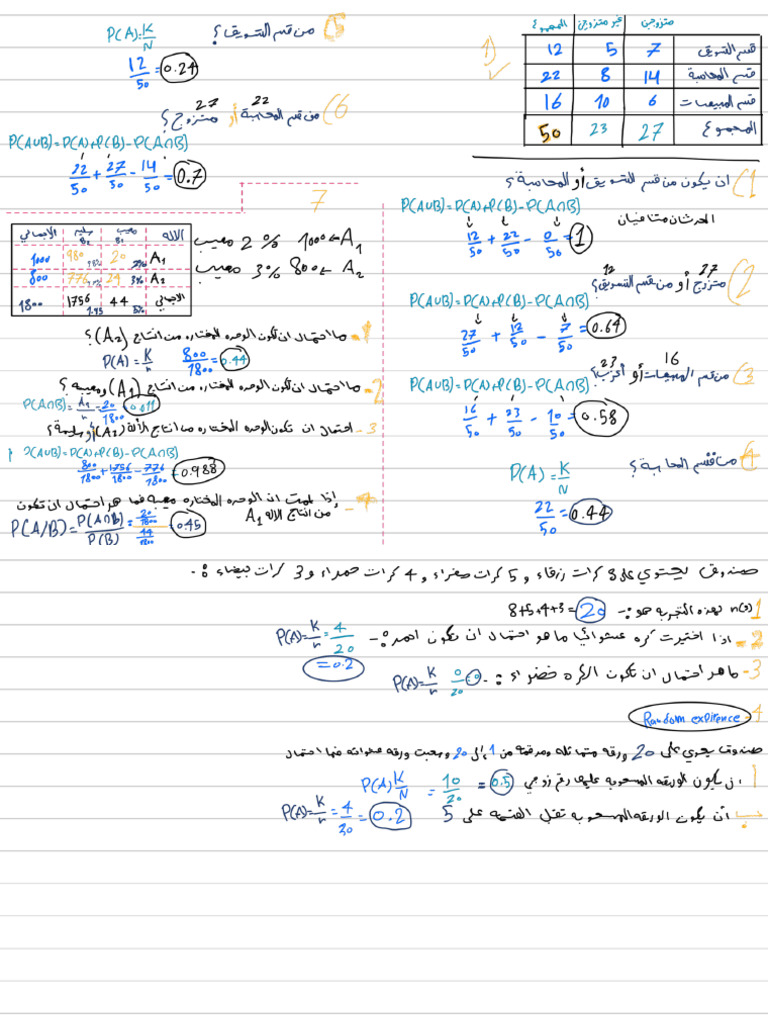 متزوجين غير متزوجين المجموع
قسم التسويق 7 5 12
قسم المحاسبة 14 8 22
قسم المبيعات 6 10 16
المجموع 27 23 50
1)
1) ان يكون من قسم التسويق أو المحاسبة ؟
P(A∪B) = P(A)+P(B)-P(A∩B)
الحدثان متنافيان
12/50 + 22/50 - 0/50 = 1
2) متزوج أو من قسم التسويق؟
27 12
P(A∪B) = P(A)+P(B)-P(A∩B)
27/50 + 12/50 - 7/50 = 0.64
3) من قسم المبيعات أو أعزب؟
16 23
P(A∪B) = P(A)+P(B)-P(A∩B)
16/50 + 23/50 - 10/50 = 0.58
4) من قسم المحاسبة ؟
P(A) = K/N
22/50 = 0.44
5) من قسم التسويق ؟
P(A)= K/N
12/50 = 0.24
6) من قسم المحاسبة أو متزوج ؟
22 27
P(A∪B) = P(A)+P(B)-P(A∩B)
22/50 + 27/50 - 14/50 = 0.7
7
A₁ ← 1000 2% معيب
A₂ ← 800 3% معيب
الآله معيب B₁ سليم B₂ الاجمالي
A₁ 20 2% 980 1000
A₂ 24 3% 776 800
الاجمالي 44 1756 1800
1- ما احتمال ان تكون الوحده المختاره من انتاج (A₂) ؟
P(A) = K/n 800/1800 = 0.44
2- ما احتمال ان تكون الوحده المختاره من انتاج (A₁) ومعيبه ؟
P(A∩B) = A₁/n = 20/1800 = 0.011
3- احتمال ان تكون الوحده المختاره من انتاج الالة (A₂) أو سليمة ؟
P(A∪B) = P(A)+P(B)-P(A∩B)
800/1800 + 1756/1800 - 776/1800 = 0.988
4- إذا علمت ان الوحده المختاره معيبه فما هو احتمال ان تكون
من انتاج الاله A₁
P(A/B) = P(A∩B)/P(B) = 20/1800 / 44/1800 = 0.45
صندوق يحتوي على 8 كرات زرقاء و 5 كرات صفراء و 4 كرات حمراء و 3 كرات بيضاء :-
1 n(s) لهذه التجربه هو :- 8+5+4+3 = 20
2- اذا اختيرت كره عشوائيا ما هو احتمال ان تكون احمر :- P(A)= K/n = 4/20
= 0.2
3- ما هو احتمال ان تكون الكره خضراء :- P(A)= K/n 0/20 = 0
4- Random expirence
صندوق يحوي على 20 ورقه متماثله ومرقمه من 1 إلى 20 وسحبت ورقه عشوائه فما احتمال
أ ان يكون الورقه المسحوبة عليها رقم زوجي P(A) K/N = 10/20 = 0.5
ب أن يكون الورقه المسحوبه تقبل القسمة على 5 P(A)= K/n = 4/20 = 0.2